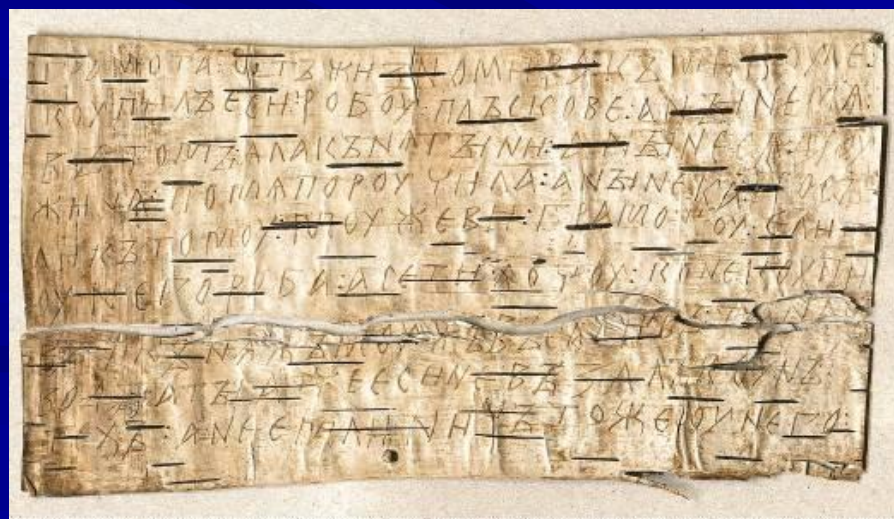 ГРАМОТА : ѠТЪ ЖИЗНОМИРА : КЪ МИКОУЛЕ :
КОУПИЛЪ ЕСИ : РОБОУ : ПЛЪСКОВЕ : А НЫНЕ МѦ :
ВЪ ТОМЪ : ѦЛА КЪНѦГЫНИ : А НЫНЕ СѦ ДРОУ
ЖИНА : ПО МѦ ПОРОУЧИЛА : А НЫНЕ КА : ПОСЪ
ЛИ КЪ ТОМОУ : МОУЖЕВИ : ГРАМОТОУ : ЕЛИ
ОУ НЕГО РОБА : А СЕ ТИ ХОЧОУ : КОНЕ КОУПИ
А ТЫ АТЧЕ ЕСИ НЕ ВЪЗАЛЪ КОУНЪ :
ТЕХЪ : А НЕ ЕМЛИ : НИЧЪТО ЖЕ ОУ НЕГО :